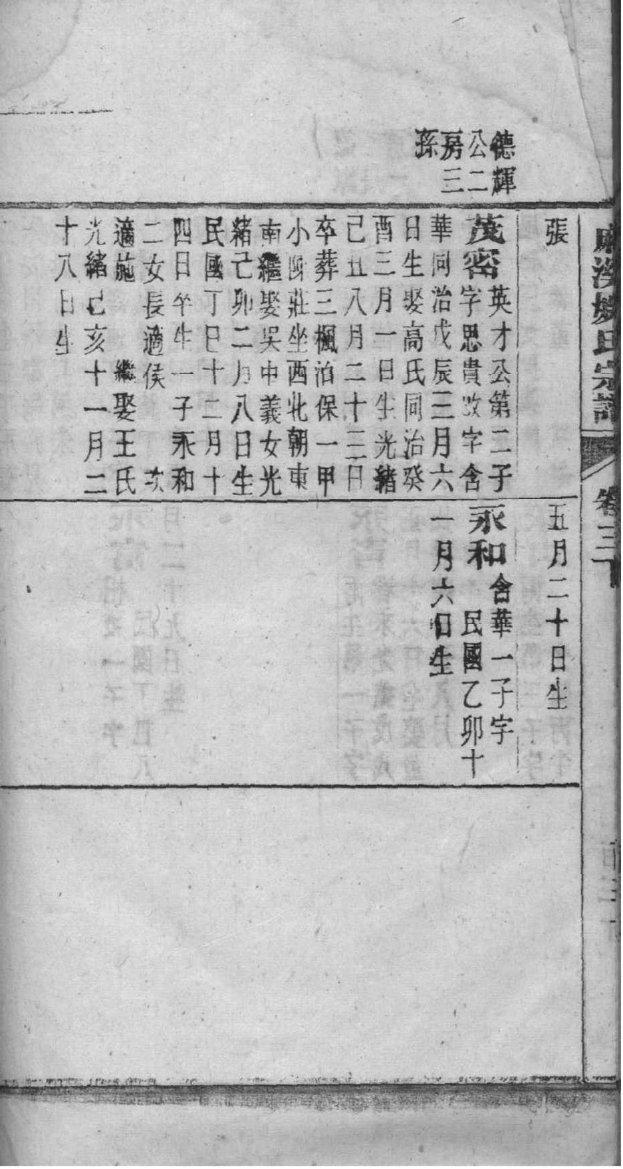 氏宗譜
卷三
德輝
公二
房三
孫
張
茂密英才公第二子
字思貴改字含
華同治戊辰三月六
日生娶高氏同治癸
酉三月一日生光緒
己丑八月二十三日
卒葬三楓泊保一甲
小 莊坐西北朝東
南繼娶吴中義女光
緒己卯二月八日生
民國丁巳十二月十
四日卒生一子永和
二女長適侯 次
適施 繼娶王氏
光緒己亥十一月二
十八日生
五月二十日生
永和含華一子字
民國乙卯十
一月六日生